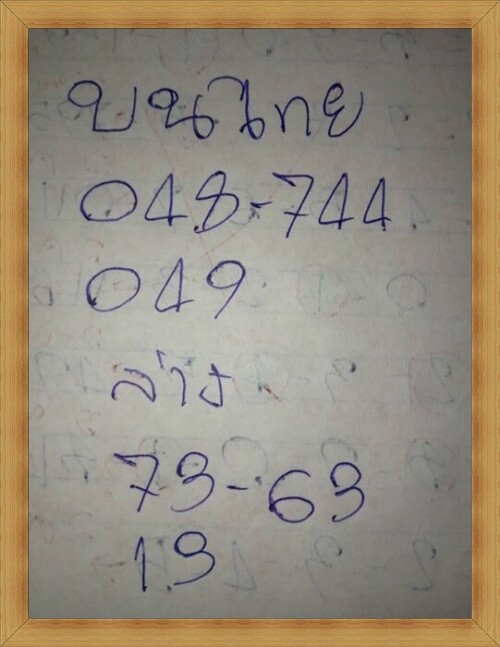 บนไทย
048-744
049
ล่าง
73-63
13